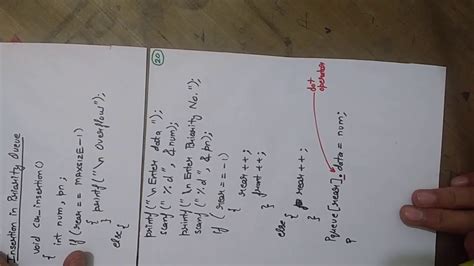 Insertion in Priority Queue
void cor_insertion()
{ int num, pn;
if (rear == MAXSIZE-1)
{ printf("\n Overflow");
}
else {
20
printf("\n Enter data ");
scanf("%d", &num);
printf("\n Enter Priority No.");
scanf("%d", &pn);
if (rear == -1)
{ rear++;
front++;
}
else { rear++;
}
dot operator
Pqueue[rear].data = num;
P